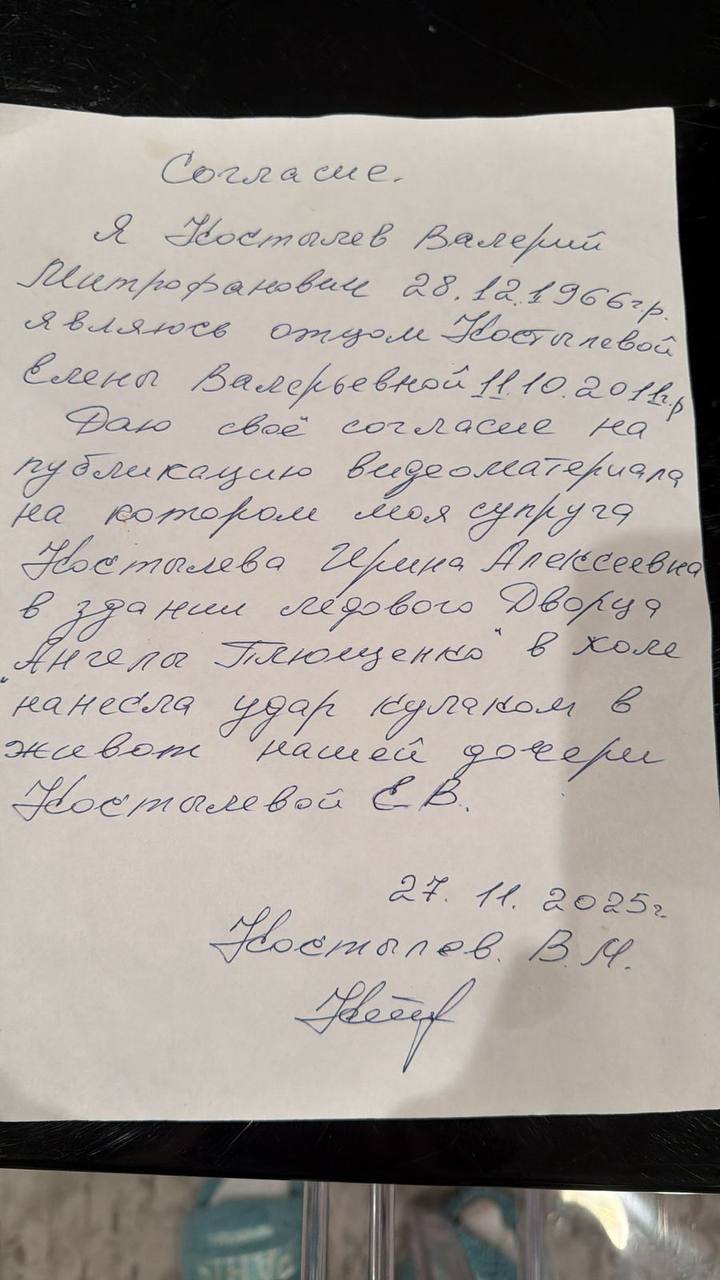 Согласие.
Я Костылев Валерий
Митрофанович 28.12.1966г.р.
являюсь отцом Костылевой
Елены Валерьевной 11.10.2011г.р
Даю своё согласие на
публикацию видеоматериала
на котором моя супруга
Костылева Ирина Алексеевна
в здании ледового Дворца
"Ангелы Плющенко" в холе
нанесла удар кулаком в
живот нашей дочери
Костылевой Е В.
27. 11. 2025г
Костылев. В. М.